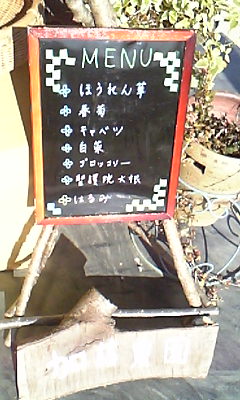 MENU
ほうれん草
春菊
キャベツ
白菜
ブロッコリー
聖護院大根
はるみ